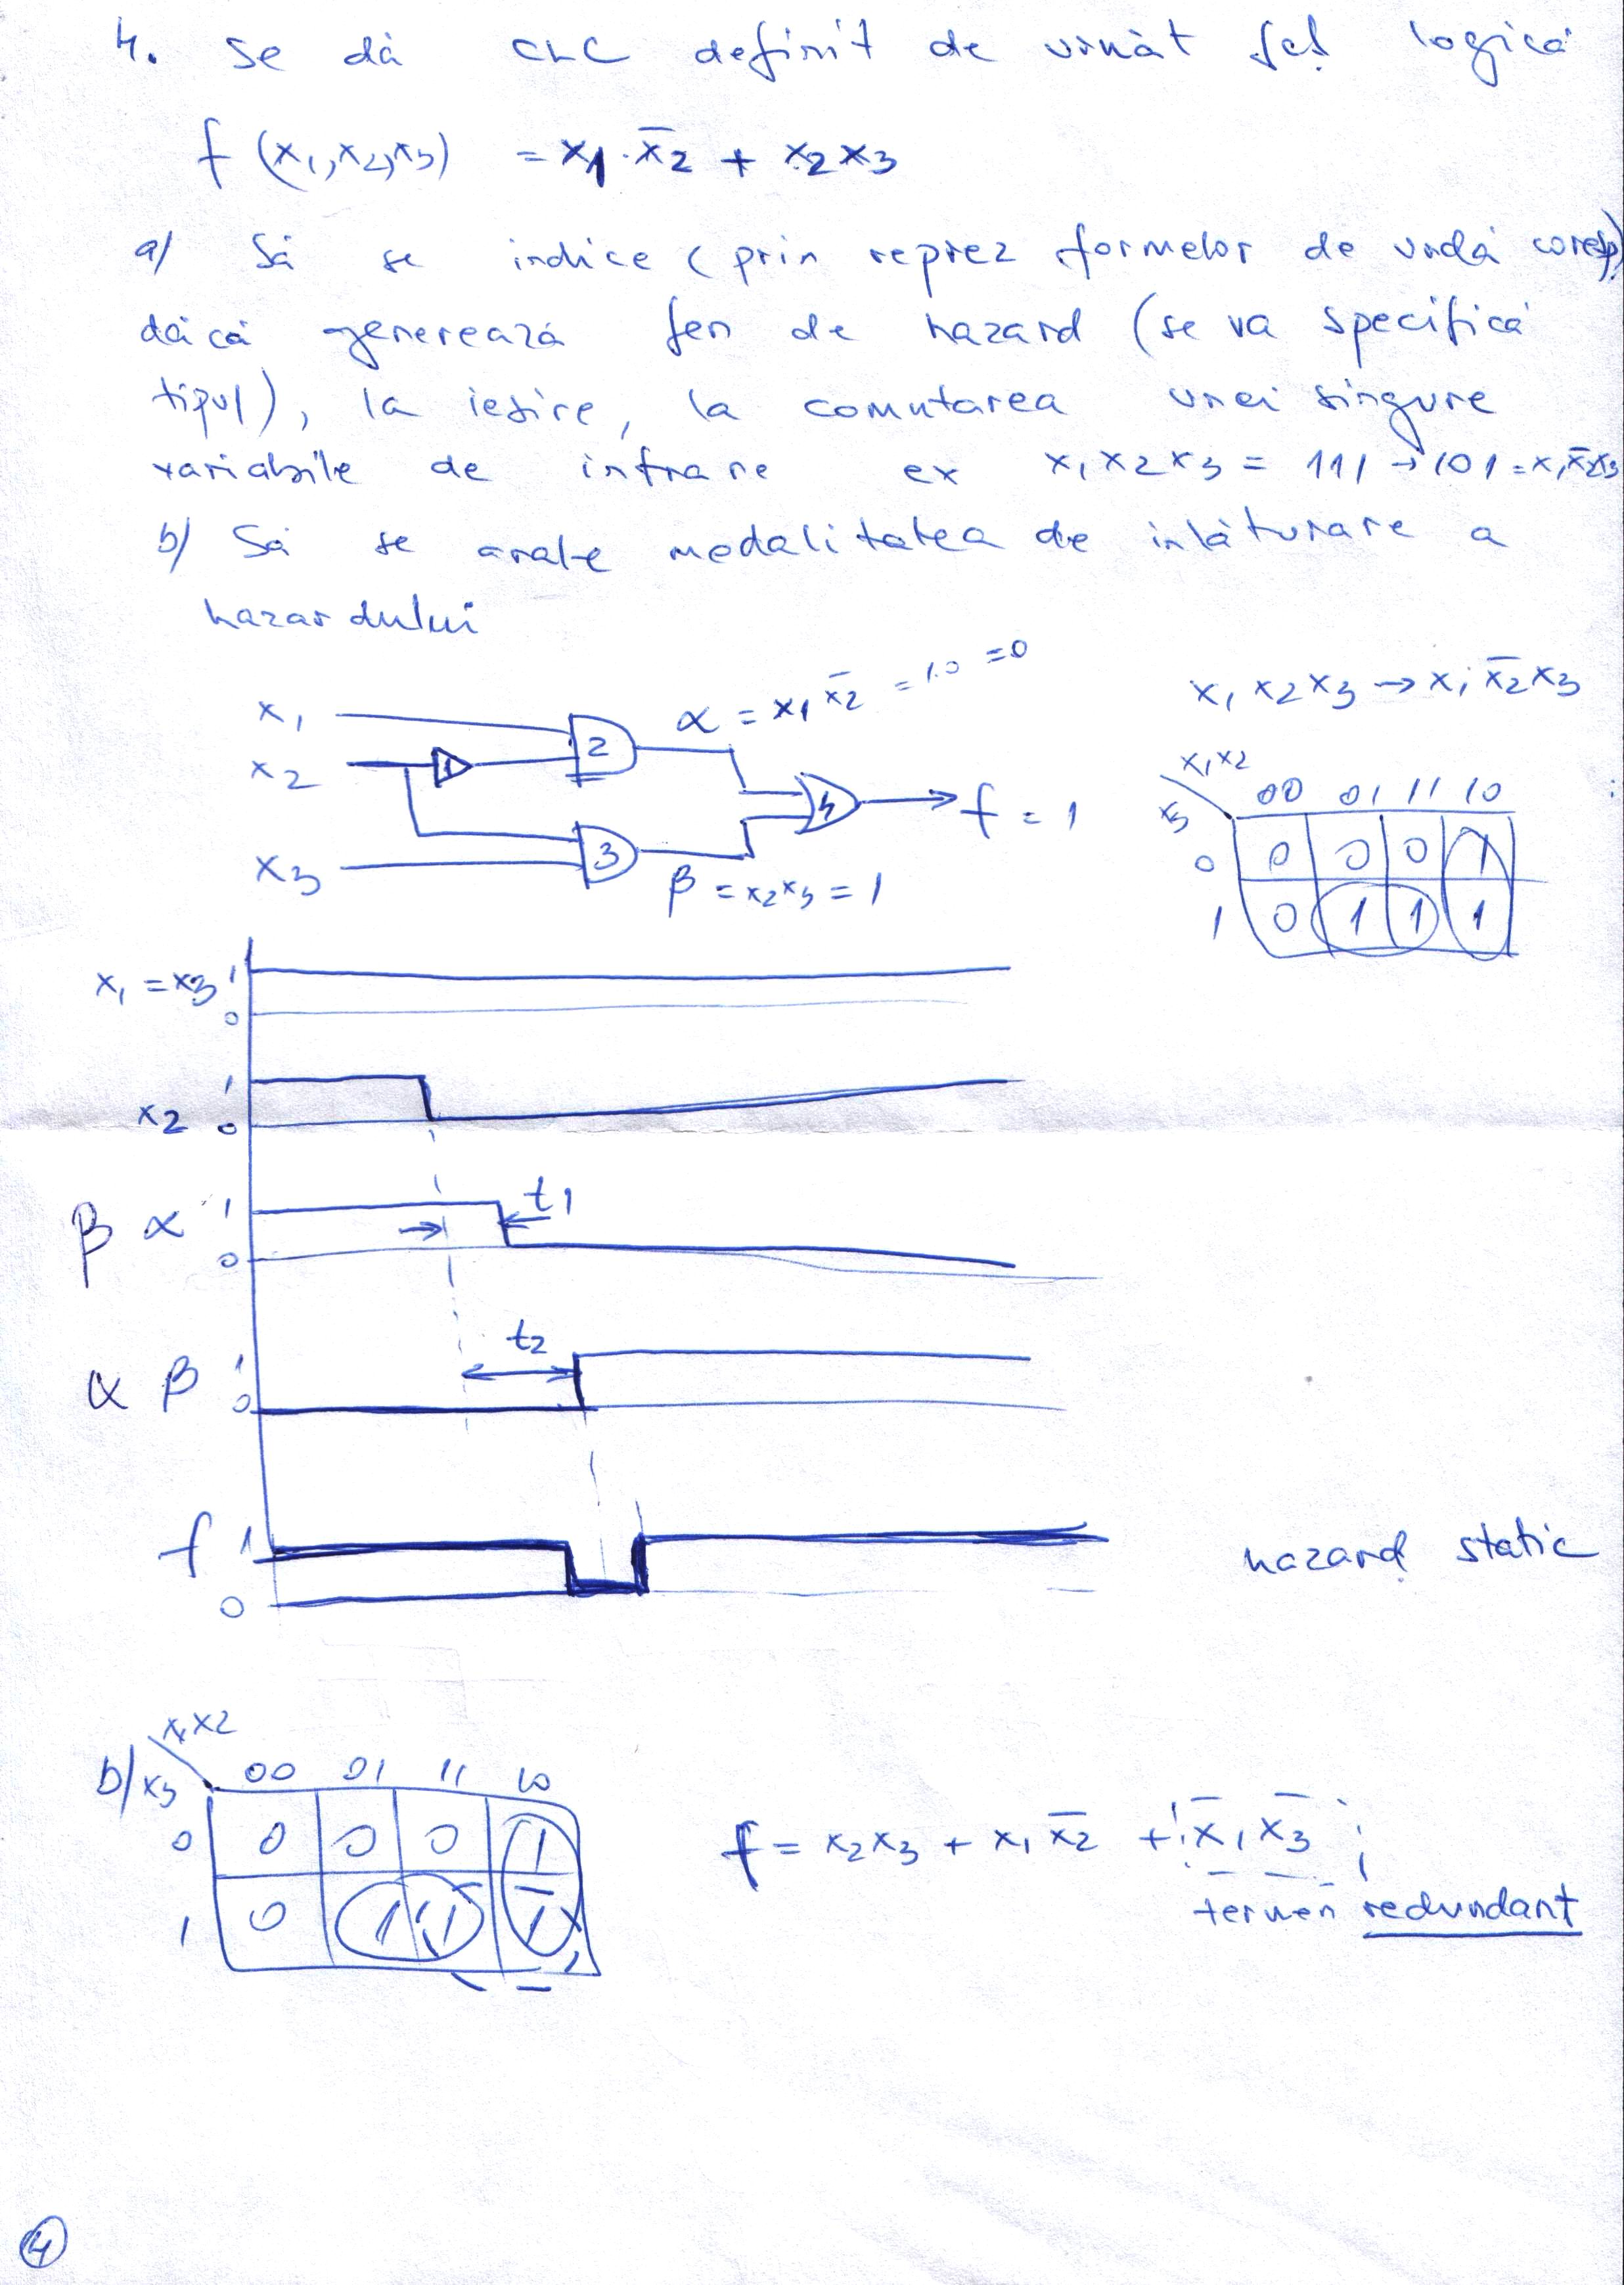 4. Se dă CLC definit de următ fcț logică
f (x1,x2,x3) = x1·x̅2 + x2x3
a/ Să se indice (prin reprez formelor de undă coresp)
dacă generează fen de hazard (se va specifica
tipul), la ieșire, la comutarea unei singure
variabile de intrare ex x1x2x3 = 111 → 101 = x1x̅2x3
b/ Să se arate modalitatea de înlăturare a
hazardului
x1 2 α = x1 x̅2 = 1.0 = 0 x1x2x3 → x1x̅2x3
x2 1 4 f = 1
x3 3 β = x2x3 = 1
x1x2
x3 00 01 11 10
0 0 0 0 1
1 0 1 1 1
x1 = x3 1
0
1
x2 0
β α 1 t1
0
t2
α β 1
0
f 1 hazard static
0
x1x2
b/ x3 00 01 11 10
0 0 0 0 1 f = x2x3 + x1x̅2 + x̅1x̅3
1 0 1 1 1 termen redundant
4